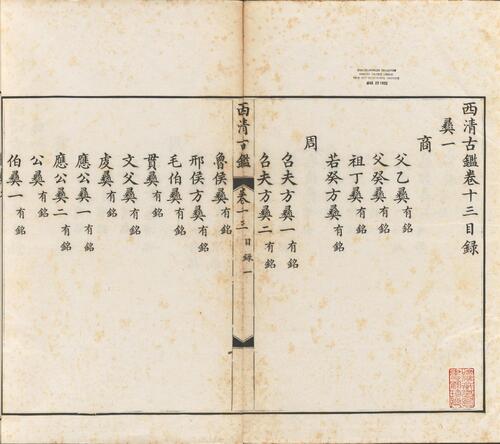 西清古鑑卷十三目録
彝一
商
父乙彝有銘
父癸彝有銘
祖丁彝有銘
若癸方彝有銘
周
召夫方彝一有銘
召夫方彝二有銘
西清古鑑 卷十三 目録 一
魯侯彝有銘
邢侯方彝有銘
毛伯彝有銘
貫彝有銘
文父彝有銘
虔彝有銘
應公彝一有銘
應公彝二有銘
公彝有銘
伯彝一有銘